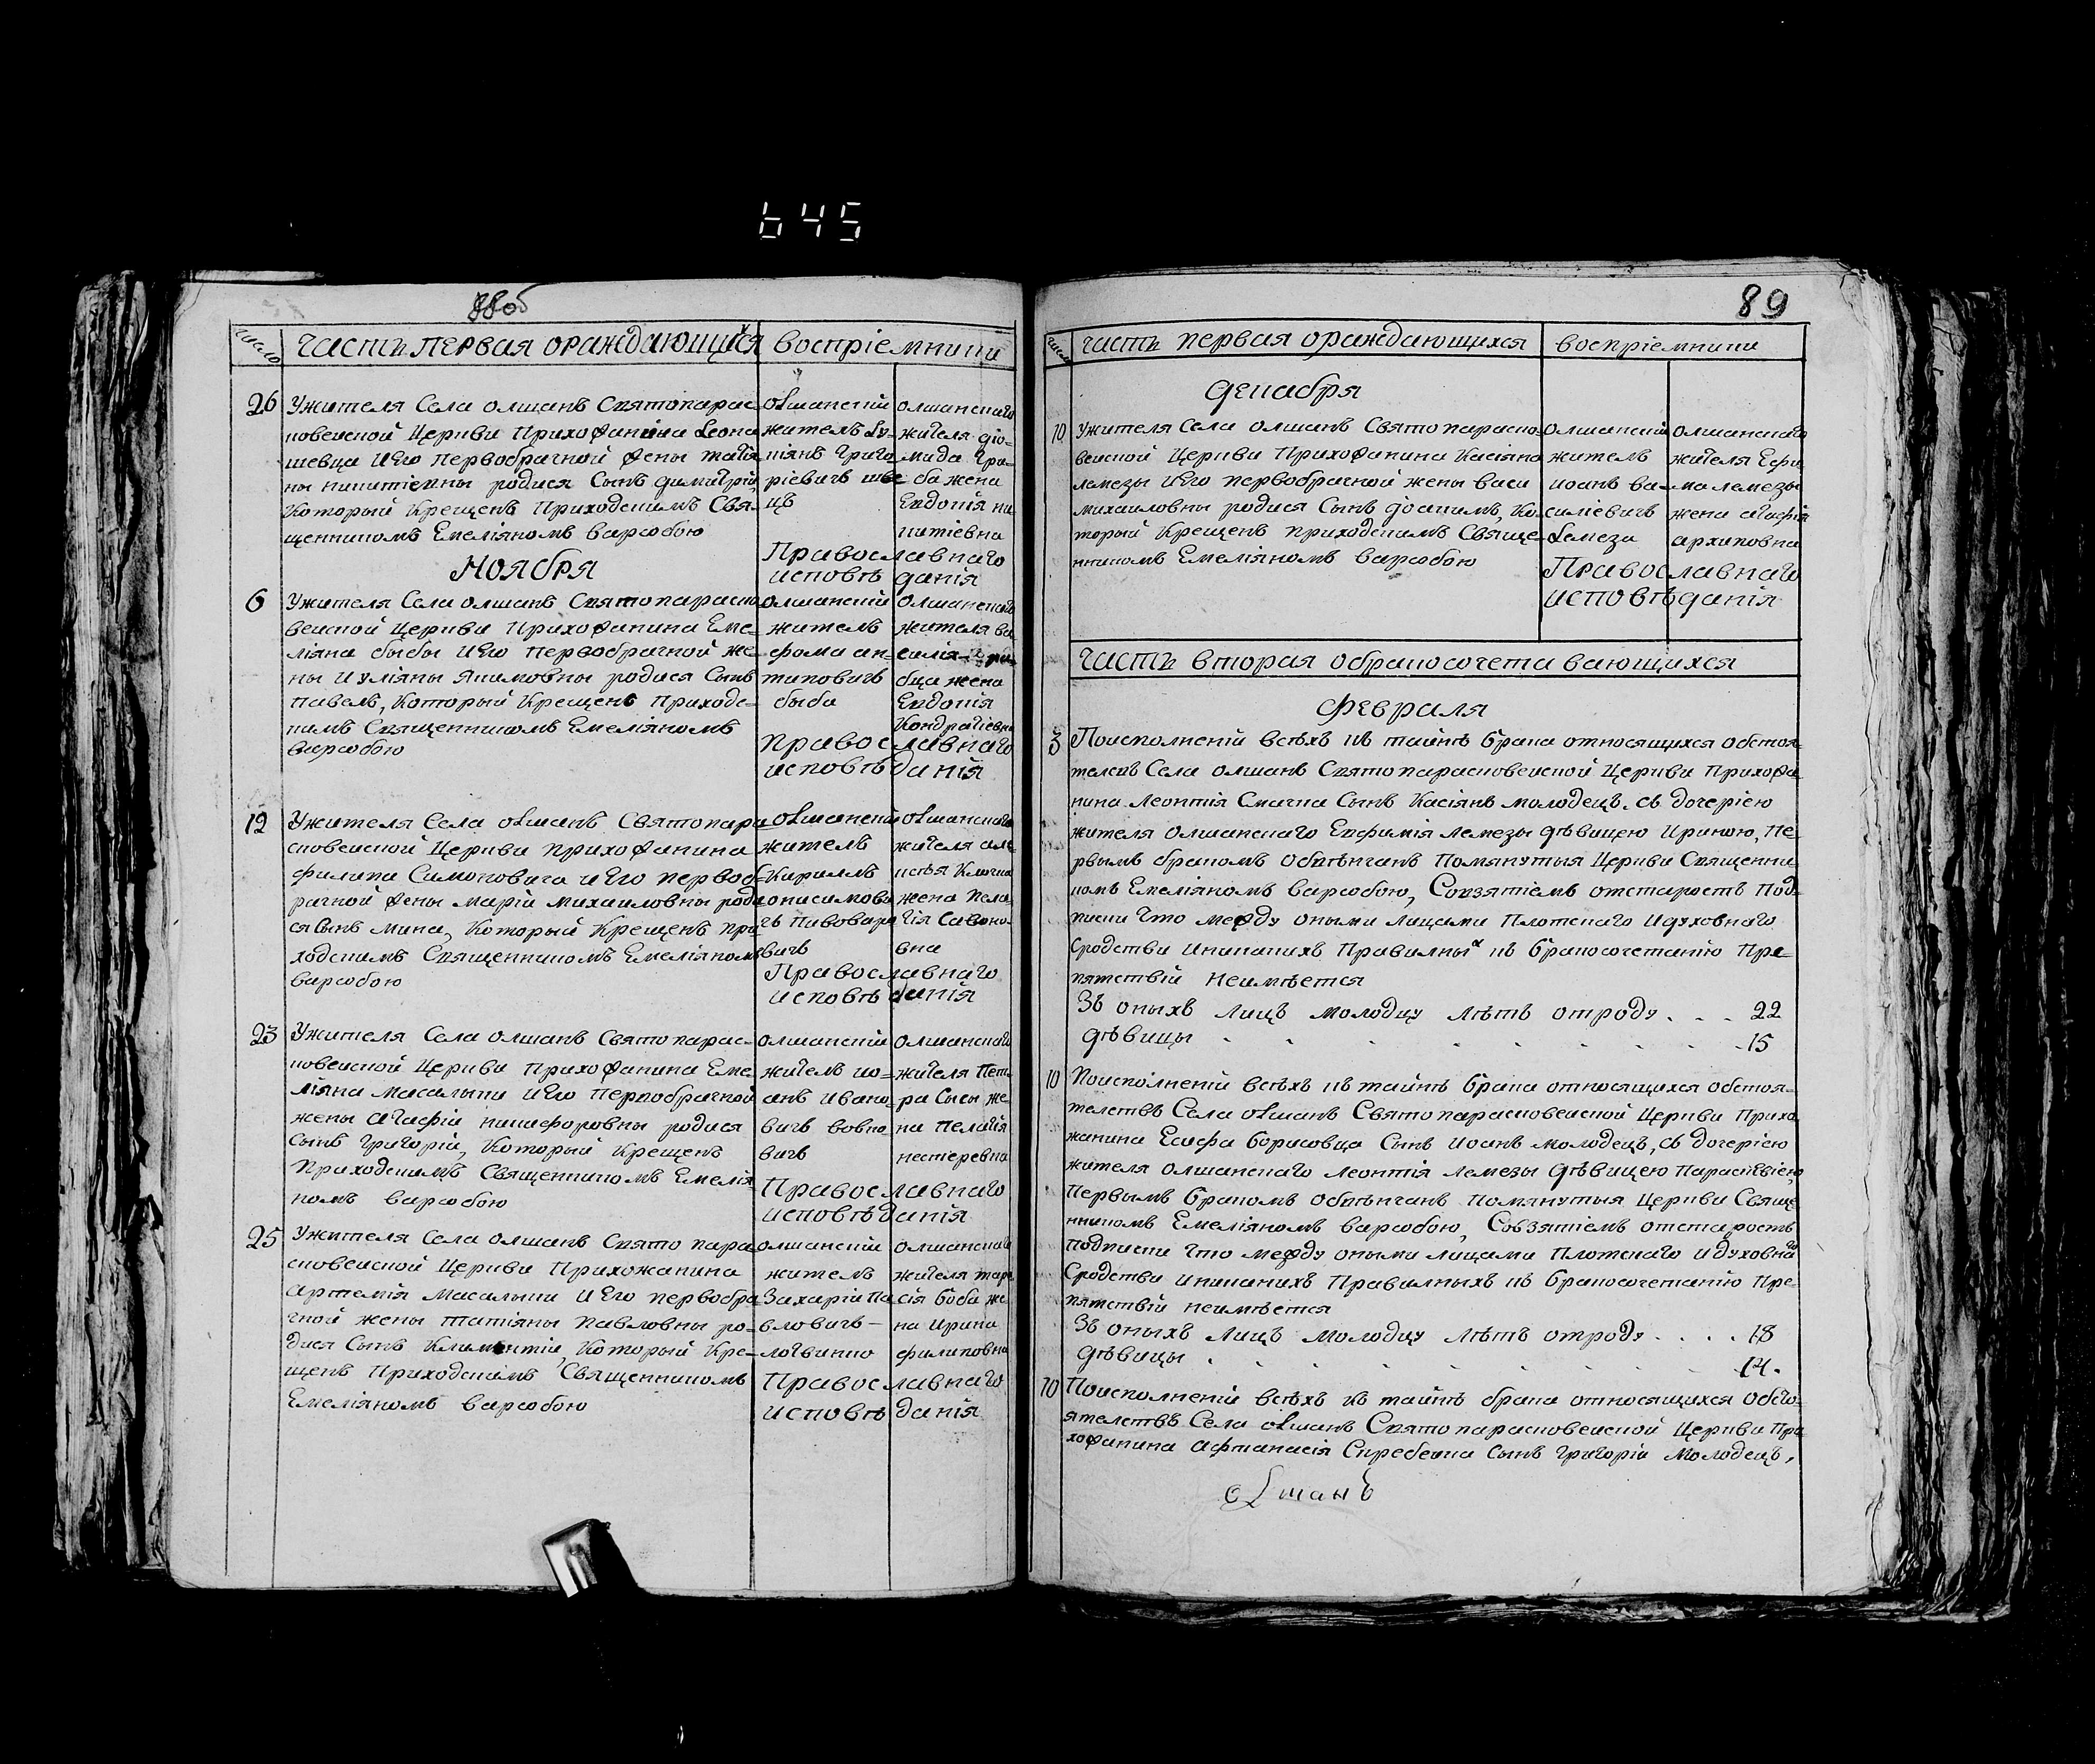 645
88об
число
часть первая ораждающихся
воспріемники
26
Ужителя Села олшанъ Святопарас-
ковенской Церкви Прихожанина Леона
шевца иЕго первобрачной жены татія
ны никитіевны родися Сынъ димитрій,
Который Крещенъ Приходскимъ Свя-
щенникомъ Емеліяномъ варавою
олшанскій
житель Лу-
кіянъ Григо
ріевичъ шве
цъ
олшанскаго
жителя діо-
мида Гри-
ба жена
Евдокія ни
китіевна
Православнаго
исповѣданія
Ноября
6
Ужителя Села олшанъ Святопараско
венской Церкви Прихожанина Еме-
ліяна быбы иЕго первобрачной же-
ны иуліяны Якимовны родися Сынъ
павелъ, Который Крещенъ Приходс-
кимъ Священникомъ Емеліяномъ
олшанскій
житель
фома ан-
типовичъ
быба
олшанскаго
жителя ва
силія
жена
Евдокія
Кондратіевна
православнаго
исповѣданія
12
Ужителя Села олшанъ Святопара
сковенской Церкви прихожанина
филипа Симоновича иЕго первоб-
рачной жены маріи михаиловны роди
ся Сынъ мина, Который Крещенъ при
ходскимъ Священникомъ Емеліяномъ
олшанскій
житель
Кирилъ
онисимови
чъ Пивовар
вичъ
олшанскаго
жителя
жена Пела
гія Савоно-
вна
Православнаго
исповѣданія
23
Ужителя Села олшанъ Святопарас-
ковенской Церкви прихожанина Еме
ліяна масалыки иЕго первобрачной
жены агафіи никифоровны родися
Сынъ Григорій, Который Крещенъ
Приходскимъ Священникомъ Емелія
номъ
олшанскій
житель ио-
анъ ивано-
вичъ вовко-
вичъ
олшанскаго
жителя Пет-
ра Сысы же-
на пелагія
нестеревна
Православнаго
исповѣданія
25
Ужителя Села олшанъ Свято пара
сковенской Церкви Прихожанина
артемія масалыки иЕго первобра
чной жены татіяны павловны ро-
дися Сынъ Климентій, Который Кре-
щенъ Приходскимъ Священникомъ
Емеліяномъ
олшанскій
житель
Захарій Па
вловичъ
логвинко
олшанскаго
жителя тара
сія боба же
на ирина
филиповна
Православнаго
исповѣданія
89
часть первая ораждающихся
воспріемники
Декабря
10
Ужителя Села олшанъ Святопараско-
венской Церкви Прихожанина Касіяна
лемезы иЕго первобрачной жены васи
михаиловны родися Сынъ иоакимъ, Ко-
торый Крещенъ приходскимъ Свяще-
нникомъ Емеліяномъ
олшанскій
житель
иоанъ ва-
силіевичъ
Лемеза
олшанскаго
жителя Ефи
ма лемезы
жена агафія
архиповна
Православнаго
исповѣданія
часть вторая обракосочетавающихся
Февраля
3
Поисполненій всѣхъ къ тайнѣ брака относящихся обстоя-
телствъ Села олшанъ Святопарасковенской Церкви Прихожа
нина Леонтія Смачна Сынъ Касіянъ молодецъ, съ дочеріею
жителя олшанскаго Евфимія лемезы дѣвицею ириною, пе-
рвымъ бракомъ обвѣнчанъ Помянутыя Церкви Священни
комъ Емеліяномъ, Совзятіемъ отстаростъ Под-
писки что между оными лицами Плотскаго идуховнаго
Сродства иникакихъ Правилныхъ къ бракосочетанію Пре-
пятствій неимѣется
Зъ оныхъ лицъ молодцу лѣтъ отроду . . . 22
дѣвицы . . . . . . . . . 15
10
Поисполненій всѣхъ къ тайнѣ брака относящихся обстоя-
телствъ Села олшанъ Святопарасковенской Церкви Прихо
жанина Есифа борисовца Сынъ иоанъ молодецъ, съ дочеріею
жителя олшанскаго леонтія лемезы дѣвицею параскевіею,
первымъ бракомъ обвѣнчанъ Помянутыя Церкви Свяще
нникомъ Емеліяномъ, Совзятіемъ отстаростъ
Подписки что между оными лицами Плотскаго идуховнаго
Сродства иникакихъ Правилныхъ къ бракосочетанію Пре-
пятствій неимѣется
Зъ оныхъ лицъ молодцу лѣтъ отроду . . . . 18
дѣвицы . . . . . . . . . 14.
10
Поисполненій всѣхъ къ тайнѣ брака относящихся обсто-
ятелствъ Села олшанъ Святопарасковенской Церкви При
хожанина афанасія Скребетна Сынъ григорій молодецъ,
олшанъ